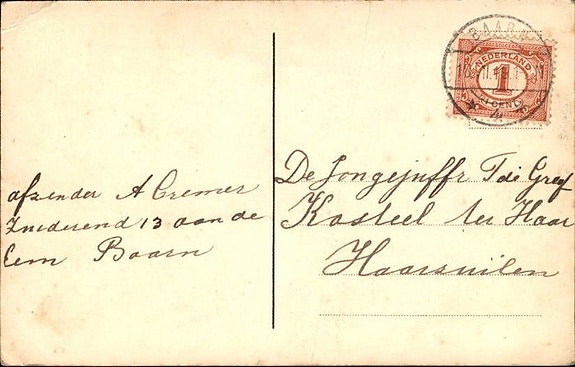 BAARN
NEDERLAND
1
CENT
afzender A Cremer
Zuidereind 13 aan de
Eem Baarn
De Jongejuffr T de Greef
Kasteel ter Haar
Haarzuilen